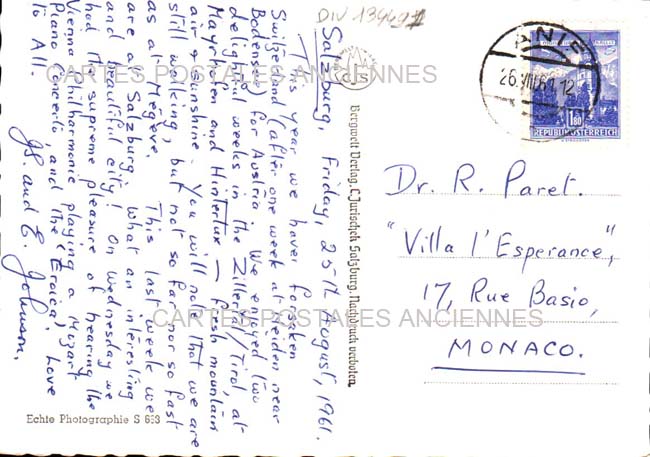 DIV 134491
Salzburg, Friday, 25th August, 1961.
This year we have forsaken
Switzerland (after one week at Heiden near
Bodensee) for Austria. We enjoyed two
delightful weeks in the Zillertal/Tirol at
Mayrhofen and Hintertux — fresh mountain
air & sunshine. You will note that we are
still walking, but not so far nor so fast
as at Mégève. This last week we
are at Salzburg: what an interesting
and beautiful city! On Wednesday we
had the supreme pleasure of hearing the
Vienna Philharmonic playing a Mozart
Piano Concerto, and the "Eroica". Love
to All.
JS. and E. Johnson.
Echte Photographie S 693
Bergwelt Verlag, C. Jurischek Salzburg. Nachdruck verboten.
ANIF
26.VIII.61.12
1.80
REPUBLIK ÖSTERREICH
Dr. R. Paret.
"Villa l'Esperance",
17, Rue Basio,
MONACO.
CARTES POSTALES ANCIENNES
CARTES POSTALES ANCIENNES